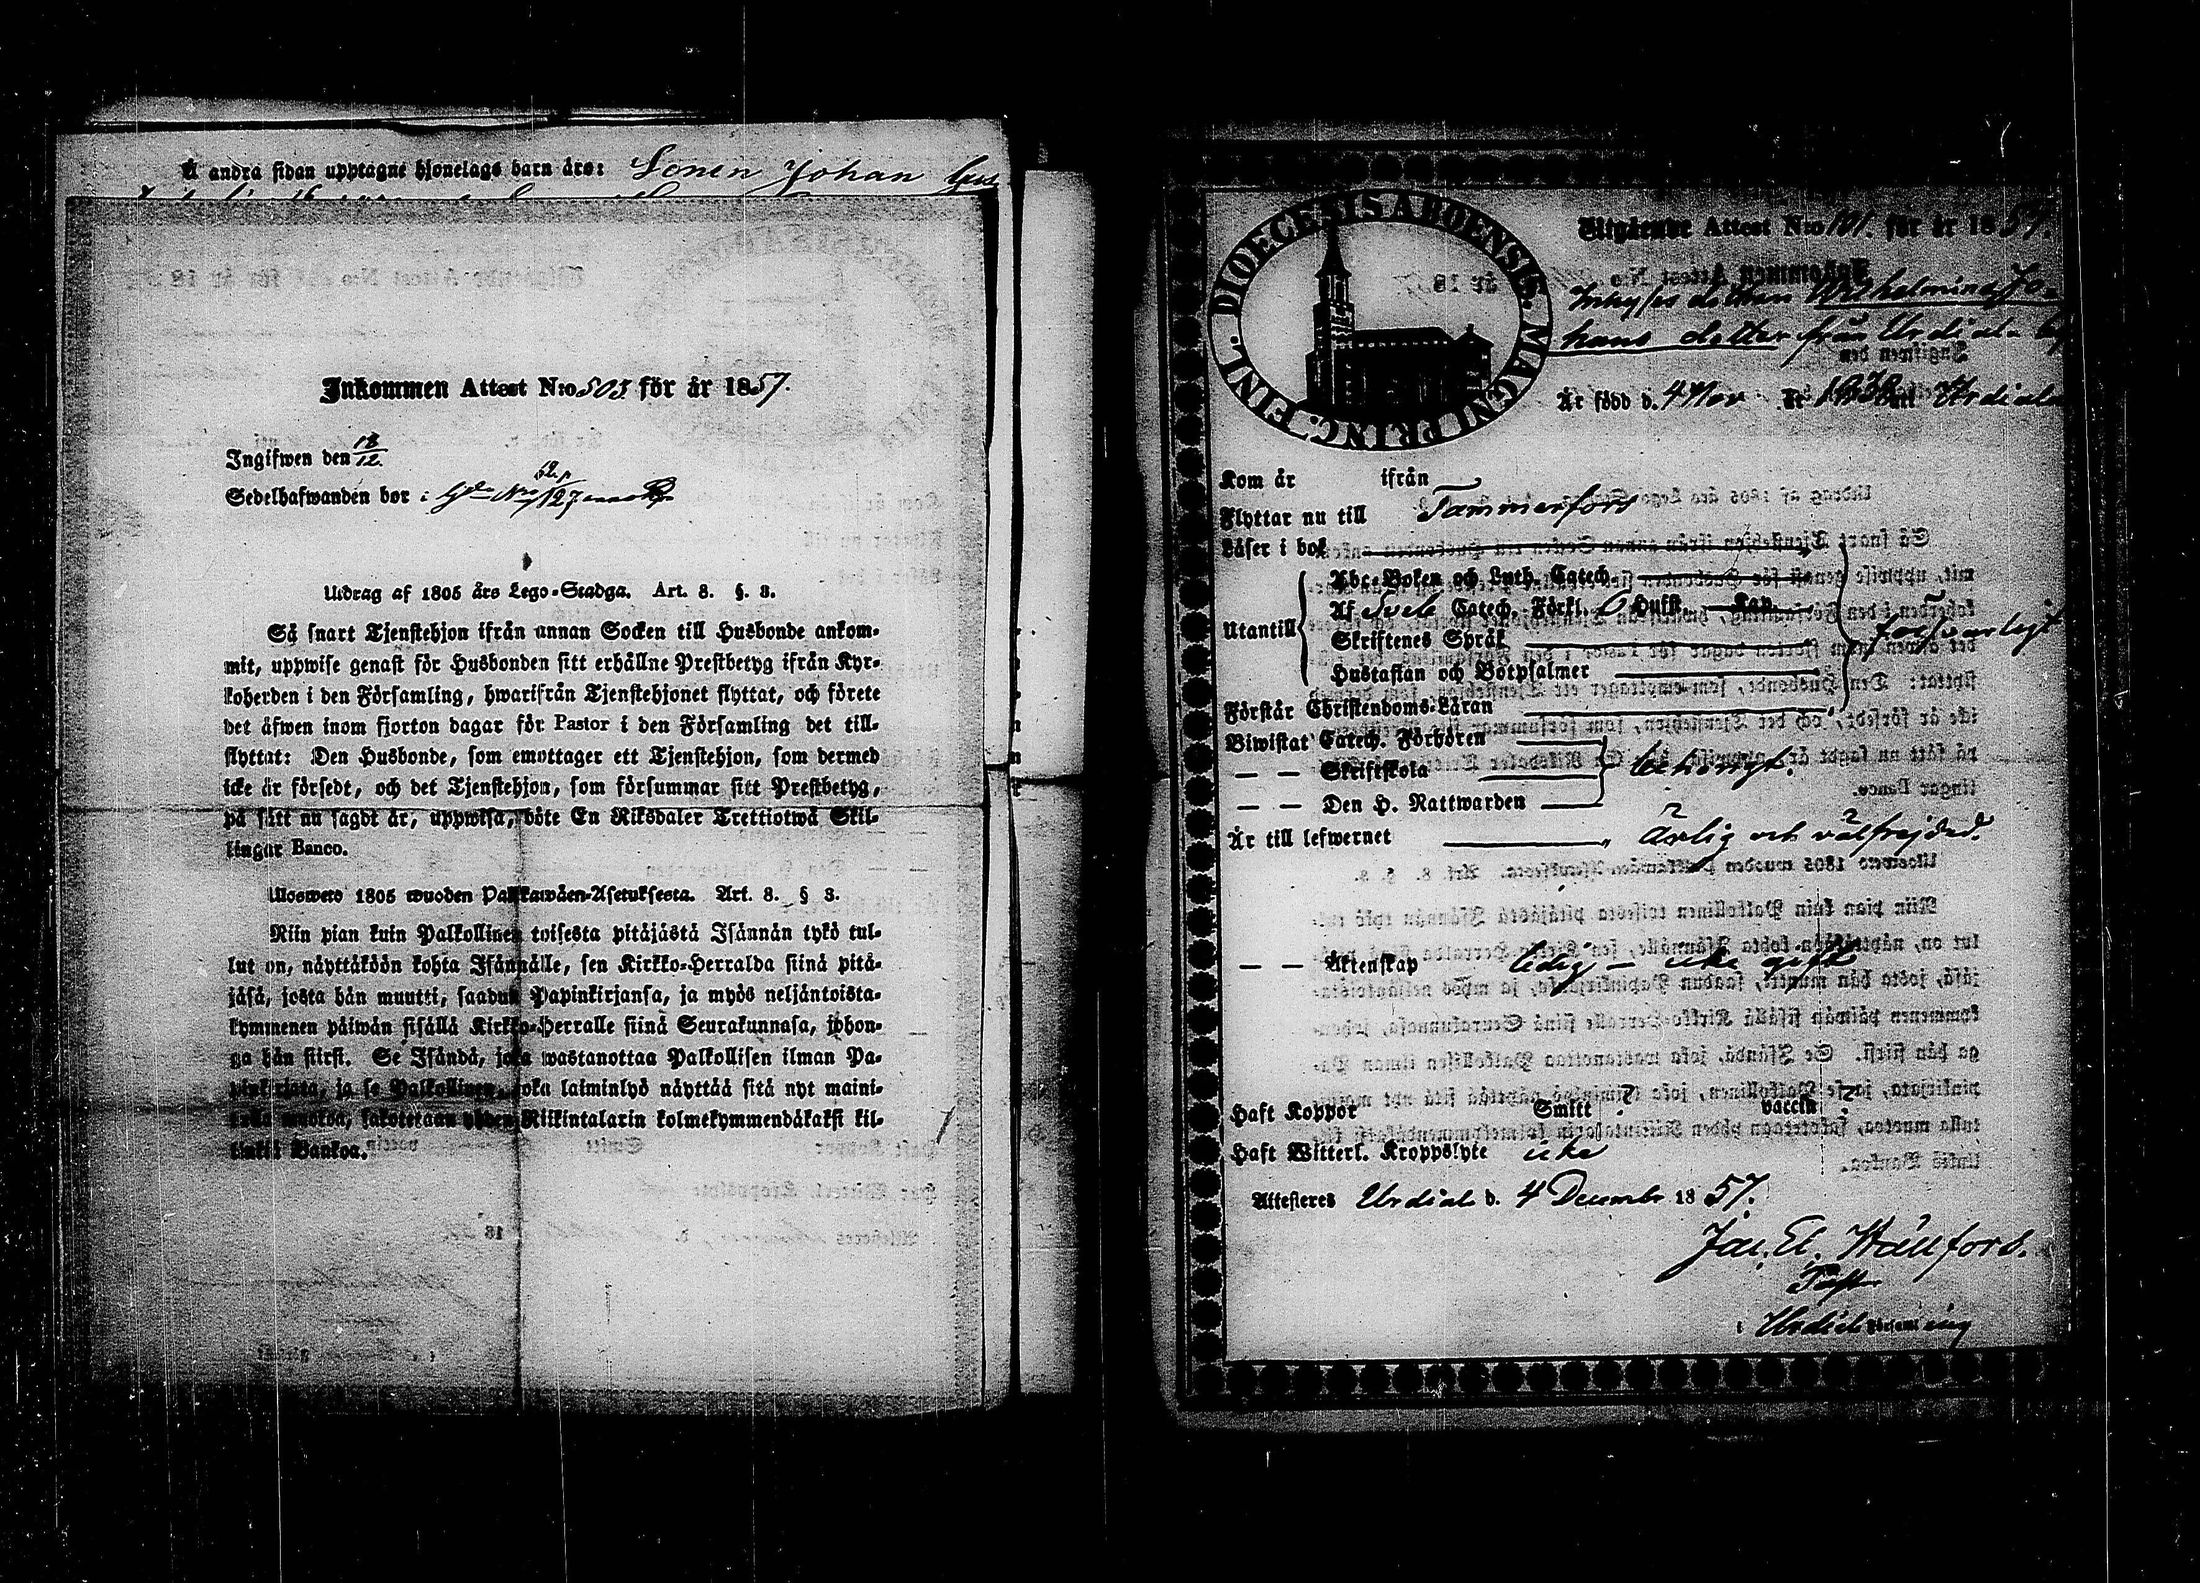 Å andra sidan upptagne hjonelags barn äro: Sonen Johan
Inkommen Attest N:o 503 för år 1857.
Ingifwen den 18/12.
Sedelhafwanden bor i N:o 127
Utdrag af 1805 års Lego-Stadga. Art. 8. §. 3.
Så snart Tjenstehjon ifrån annan Socken till Husbonde ankom-
mit, uppwise genast för Husbonden sitt erhållne Prestbetyg ifrån Kyr-
koherden i den Församling, hwarifrån Tjenstehjonet flyttat, och förete
det äfwen inom fjorton dagar för Pastor i den Församling det till-
flyttat: Den Husbonde, som emottager ett Tjenstehjon, som dermed
icke är försedt, och det Tjenstehjon, som försummar sitt Prestbetyg,
på sätt nu sagdt är, uppwisa, böte En Riksdaler Trettiotwå Skil-
lingar Banco.
Ulosweto 1805 wuoden Palkkawäen-Asetuksesta. Art. 8. § 3.
Niin pian kuin Palkollinen toisesta pitäjästä Isännän tykö tul-
lut on, näyttäköön kohta Isännälle, sen Kirkko-Herralda siinä pitä-
jäsä, josta hän muutti, saadun Papinkirjansa, ja myös neljäntoista-
kymmenen päiwän sisällä Kirkko-Herralle siinä Seurakunnasa, johon-
ga hän siirsi. Se Isändä, joka wastanottaa Palkollisen ilman Pa-
pinkirjata, ja se Palkollinen, joka laiminlyö näyttää sitä nyt maini-
tulla muotoa, sakotetaan yhden Riikintalarin kolmekymmendäkaksi kil-
linkiä Bankoa.
DIOECESIS ABOENSIS. MAGNI PRINC. FINL.
Utgående Attest N:o 101. för år 1857.
Inhyses dottern Wilhelmina Jo-
hans dotter från Urdiala by
Är född d. 4 Nov år 1838 uti Urdiala
Kom år ifrån
Flyttar nu till Tammerfors
Läser i bok
Abc-Boken och Luth. Catech.
Utantill Af Sveb. Catech. Förkl. O Hufst. Kap.
Skriftenes Språk försvarligt
Hustaflan och Botpsalmer
Förstår Christendoms-Läran
Biwistat Catech. Förhören
— — Skriftskola behörigt.
— — Den H. Nattwarden
Är till lefwernet ärlig och välfrejdad.
— — Äktenskap ledig — icke gift
Haft Koppor Smitt ? vaccin ?
Haft Witterl. Kroppslyte icke
Attesteres Urdiala d. 4 December 1857.
Jac. El. Wällfors.
Past.
i Urdiala Församling